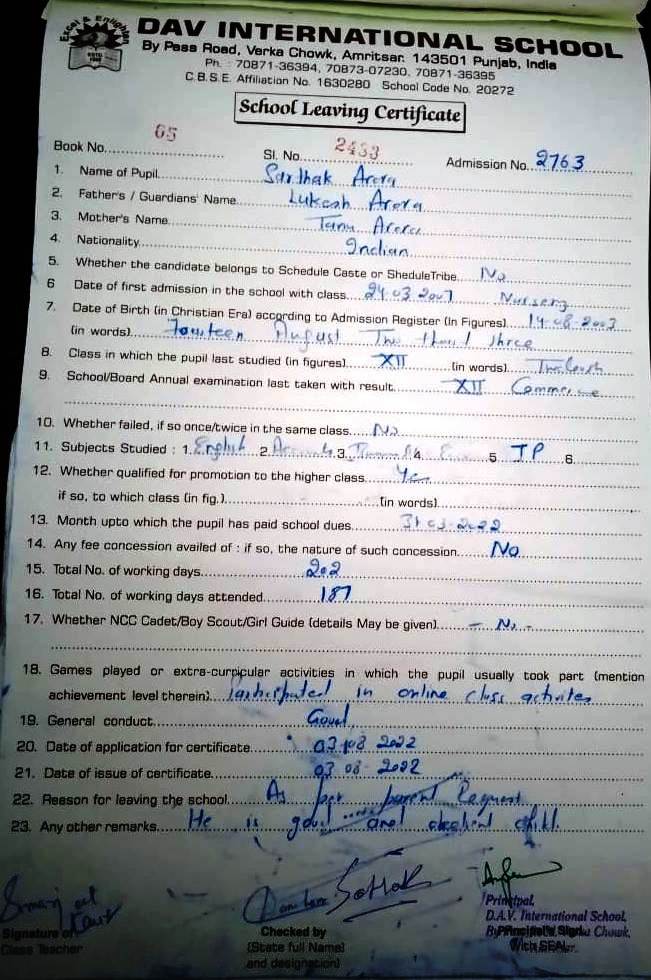 Excel & Enlighten
DAV INTERNATIONAL SCHOOL
By Pass Road, Verka Chowk, Amritsar. 143501 Punjab, India
Ph. : 70871-36394, 70873-07230, 70871-36395
C.B.S.E. Affiliation No. 1630280 School Code No. 20272
School Leaving Certificate
Book No. 65 Sl. No. 2433 Admission No. 2763
1. Name of Pupil Sarthak Arora
2. Father's / Guardians' Name Lukesh Arora
3. Mother's Name Tanu Arora
4. Nationality Indian
5. Whether the candidate belongs to Schedule Caste or SheduleTribe No
6 Date of first admission in the school with class 24.03.2007 Nursery
7. Date of Birth (in Christian Era) according to Admission Register (In Figures) 14-08-2003
(in words) Fourteen August Two thousand three
8. Class in which the pupil last studied (in figures) XII (in words) Twelveth
9. School/Board Annual examination last taken with result XII Commerce
10. Whether failed, if so once/twice in the same class No
11. Subjects Studied : 1. English 2. 3. 4. 5. IP 6.
12. Whether qualified for promotion to the higher class Yes
if so, to which class (in fig.) (in words)
13. Month upto which the pupil has paid school dues 31-03-2022
14. Any fee concession availed of : if so, the nature of such concession No
15. Total No. of working days 202
16. Total No. of working days attended 187
17. Whether NCC Cadet/Boy Scout/Girl Guide (details May be given) - No -
18. Games played or extra-curricular activities in which the pupil usually took part (mention
achievement level therein) in online class activites
19. General conduct Good
20. Date of application for certificate 03-08 2022
21. Date of issue of certificate 03 08- 2022
22. Reason for leaving the school As per parent Request
23. Any other remarks He is good and child.
Signature of
Class Teacher
Checked by
(State full Name
and designation)
Principal,
D.A.V. International School,
Principal's Sign. Chowk,
With SEAL